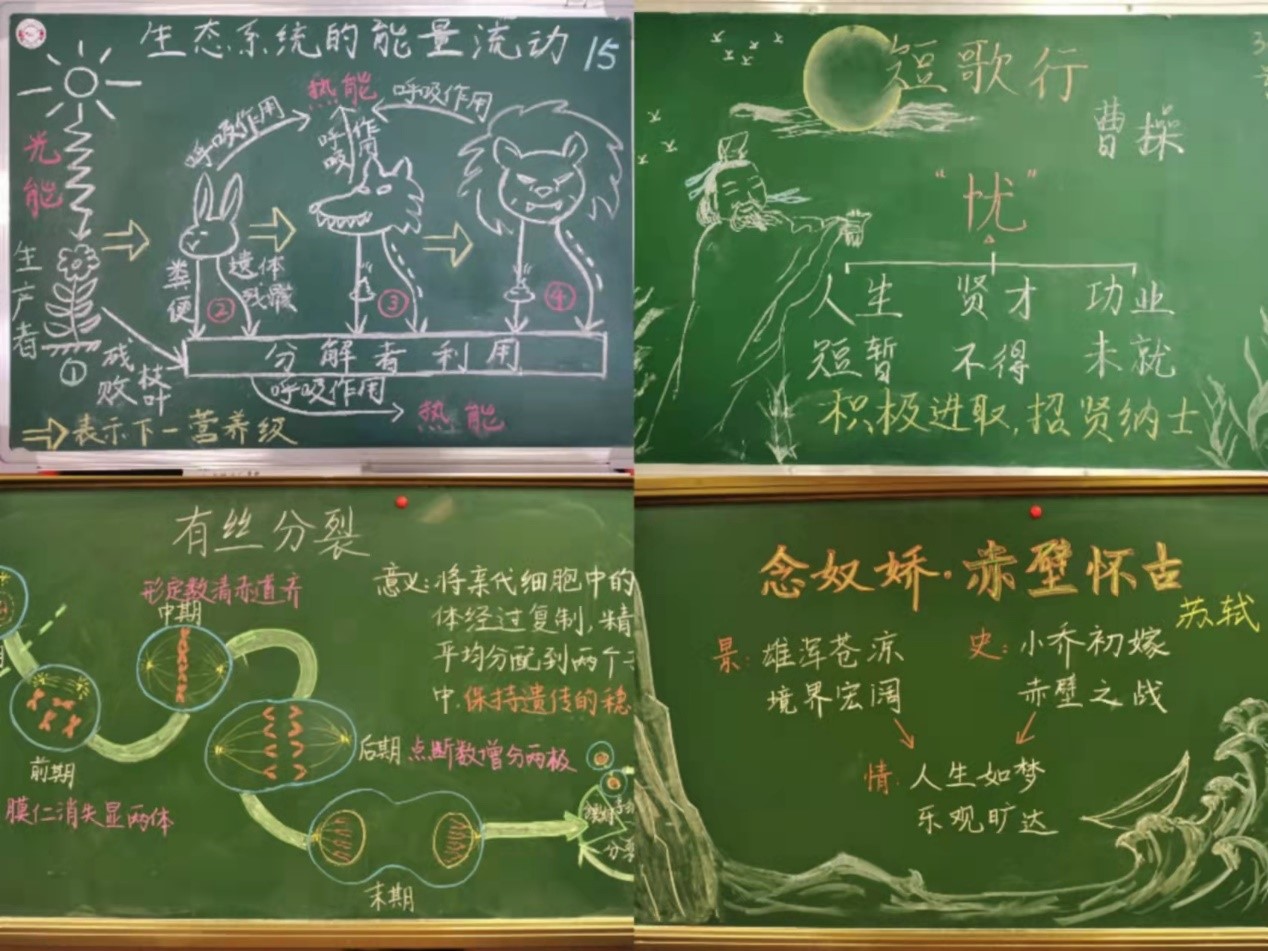 生态系统的能量流动 15
热能
呼吸作用
呼吸作用
呼吸作用
光能
生产者
①
粪便
②
遗体残骸
③
④
残枝败叶
分解者利用
呼吸作用
热能
表示下一营养级
短歌行
曹操
“忧”
人生 贤才 功业
短暂 不得 未就
积极进取，招贤纳士
有丝分裂
形定数清赤道齐
中期
前期
膜仁消失显两体
后期 点断数增分两极
末期
意义：将亲代细胞中的
体经过复制，精
平均分配到两个
中.保持遗传的稳
分裂
念奴娇·赤壁怀古
苏轼
景：雄浑苍凉
境界宏阔
史：小乔初嫁
赤壁之战
情：人生如梦
乐观旷达